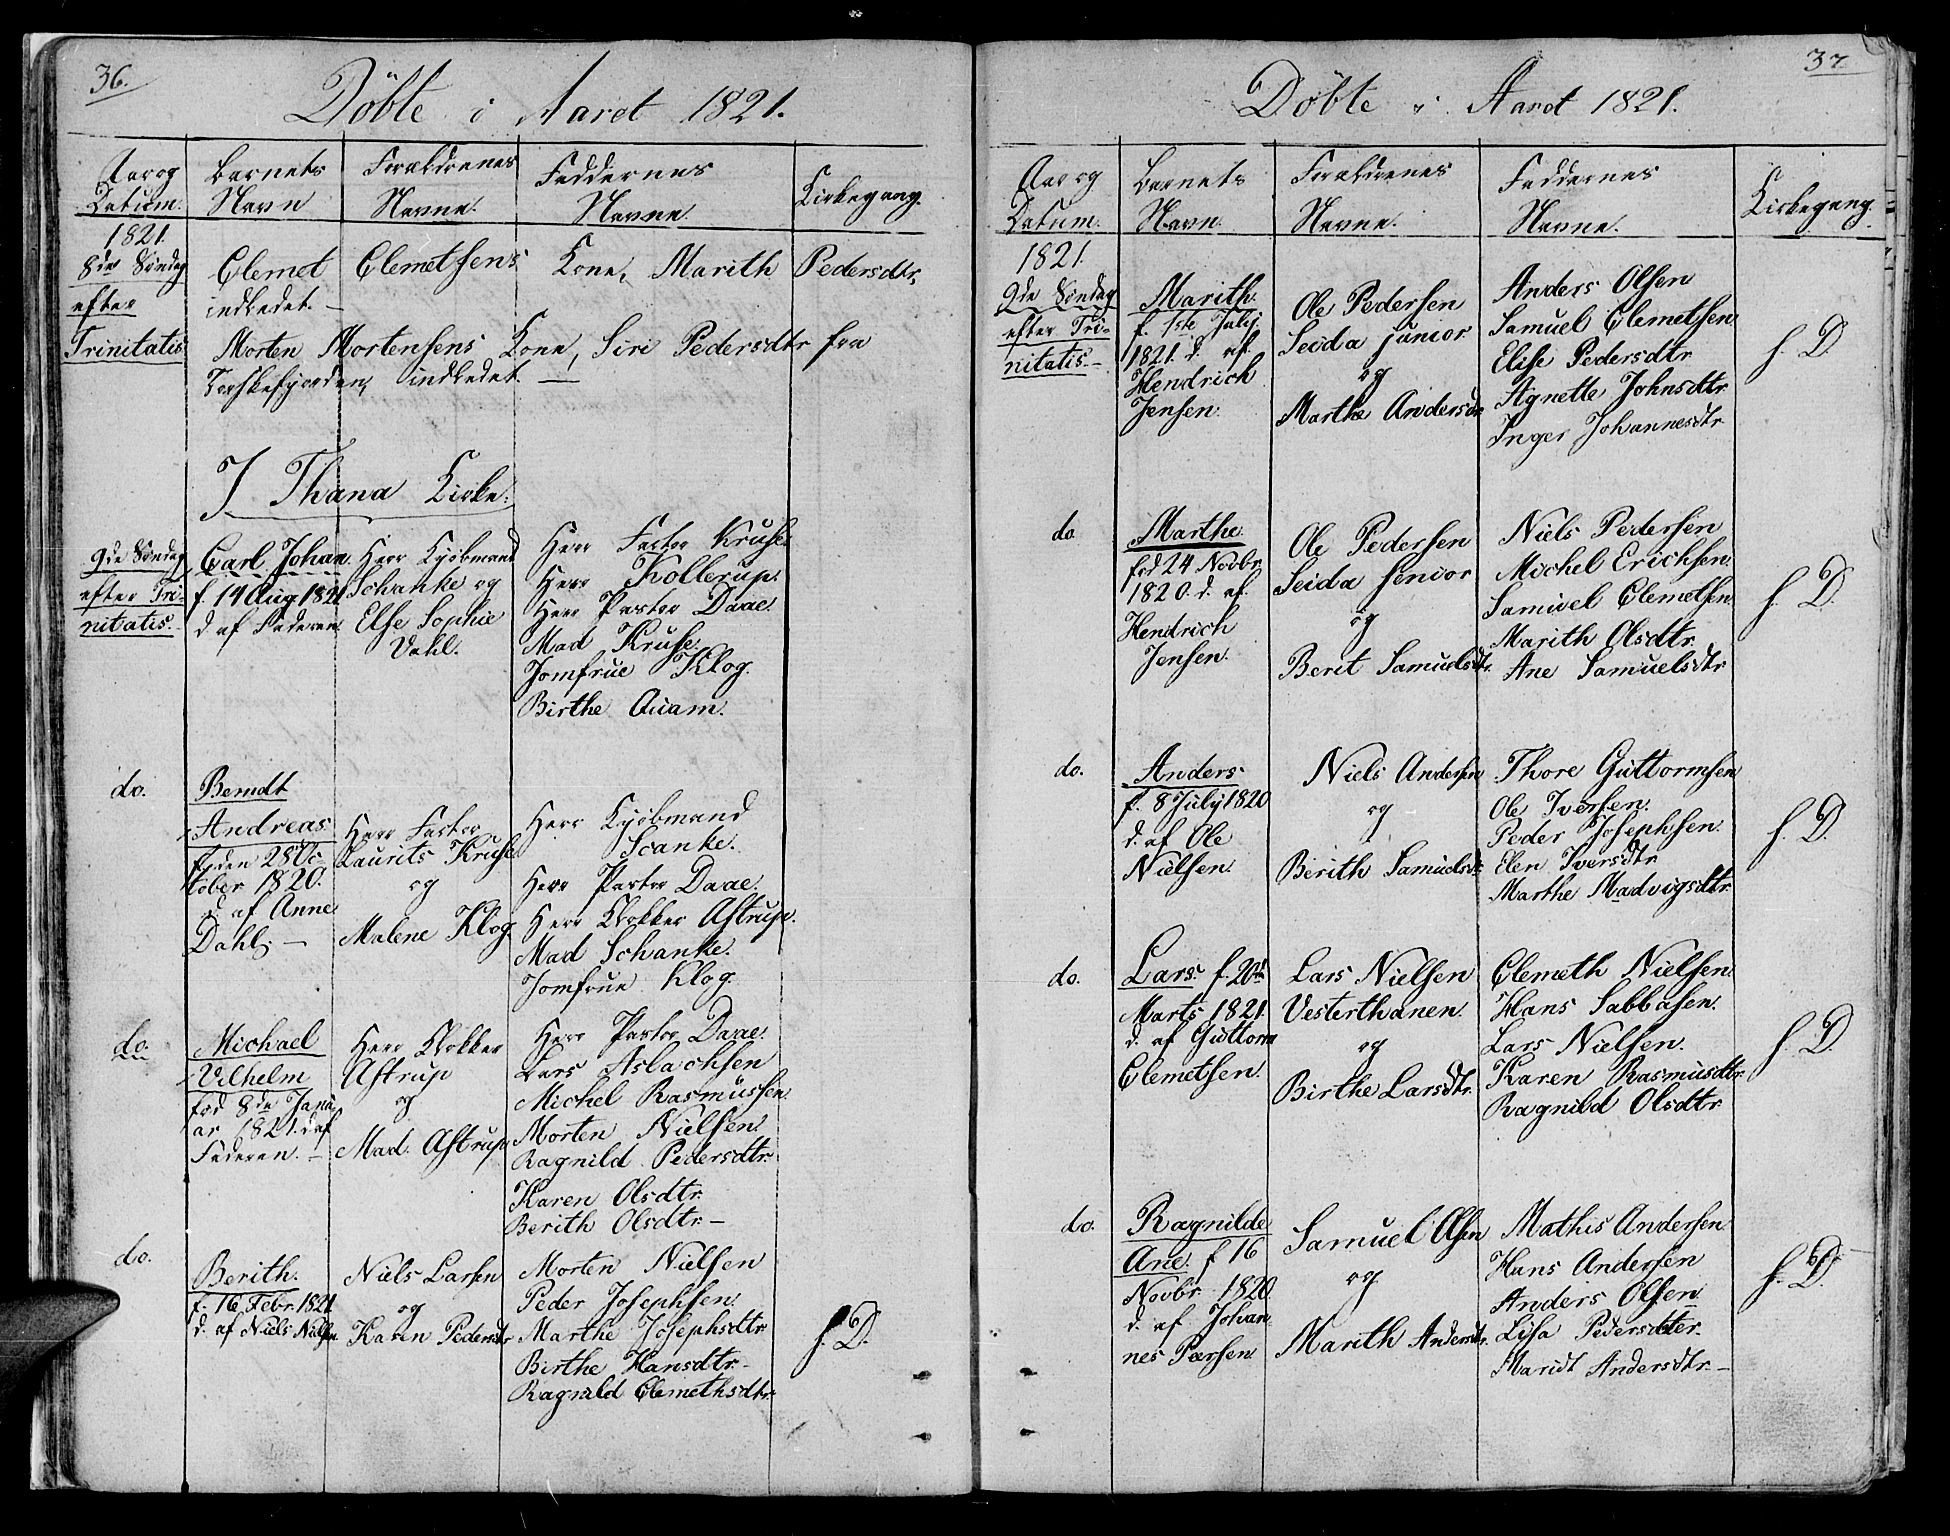 36.
Döbte i Aaret 1821.
Aar og Datum.
Barnets Navn
Forældrenes Navne.
Faddernes Navne.
Kirkegang.
1821.
8de Söndag
efter
Trinitatis
Clemet Clemetsens Kone, Marith Pedersdtr,
indledet. —
Morten Mortensens Kone, Siri Pedersdtr fra
Torskefjorden, indledet. —
I Thana Kirke.
9de Söndag
efter Tri-
nitatis.
Carl Johan.
f. 14 Aug 1821
d af Faderen
Herr Kjöbmand
Schanke og
Else Sophie
Dahl.
Herr Factor Kruse.
Herr Kollerup.
Herr Pastor Daae.
Mad Kruse.
Jomfrue Klog.
Birthe Quam.
do.
Berndt
Andreas
f. den 28 Oc-
tober 1820.
d. af Anne
Dahl. —
Herr Factor
Laurits Kruse
og
Malene Klog.
Herr Kjöbmand
Scanke.
Herr Pastor Daae.
Herr Klokker Astrup.
Mad Schanke.
Jomfrue Klog.
do.
Michael
Vilhelm
fød 8de Janu-
ar 1821. d af
Faderen. —
Herr Klokker
Astrup
og
Mad. Astrup
Herr Pastor Daae.
Lars Aslachsen
Michel Rasmussen
Morten Nielsen.
Ragnild Pedersdtr.
Karen Olsdtr.
Berith Olsdtr. —
do.
Berith.
f. 16 Febr. 1821
d. af Niels Nilsen
Niels Larsen
og
Karen Pedersdtr
Morten Nielsen
Peder Josephsen.
Marthe Josephsdtr
Birthe Hansdtr. —
Ragnild Clemethsdtr.
f. D.
37
Döbte i Aaret 1821.
Aar og Datum.
Barnets Navn.
Forældrenes Navne.
Faddernes Navne.
Kirkegang.
1821.
9de Söndag
efter Tri-
nitatis. —
Marith.
f. 1ste July
1821. d. af
Hendrich
Jensen.
Ole Pedersen
Seida junior
og
Marthe Andersdtr
Anders Olsen
Samuel Clemetsen
Elise Pedersdtr
Agnette Johnsdtr
Inger Johannesdtr
f. D.
do
Marthe.
fød 24 Novbr.
1820. d. af.
Hendrich
Jensen.
Ole Pedersen
Seida senior
og
Berit Samuelsdtr.
Niels Pedersen
Michel Erichsen
Samuel Clemetsen
Marith Olsdtr.
Ane Samuelsdtr
f. D.
do.
Anders.
f. 8 July 1820
d. af Ole
Nielsen.
Niels Andersen
og
Berith Samuelsdtr
Thore Guttormsen
Ole Iversen.
Peder Josephsen.
Elen Iversdtr
Marthe Madvigsdtr.
f. D.
do.
Lars. f. 20de
Marts 1821.
d. af Guttorm
Clemetsen.
Lars Nielsen
Vesterthanen.
og
Birthe Larsdtr.
Clemeth Nielsen
Hans Sabbasen.
Lars Nielsen.
Karen Rasmusdtr
Ragnild Olsdtr.
f. D.
do.
Ragnilde
Ane. f 16
Novbr 1820.
d. af Johan-
nes Persen
Samuel Olsen
og
Marith Andersdtr.
Mathis Andersen
Hans Andersen
Anders Olsen
Lisa Pedersdtter.
Maridt Andersdtr. —
f. D.